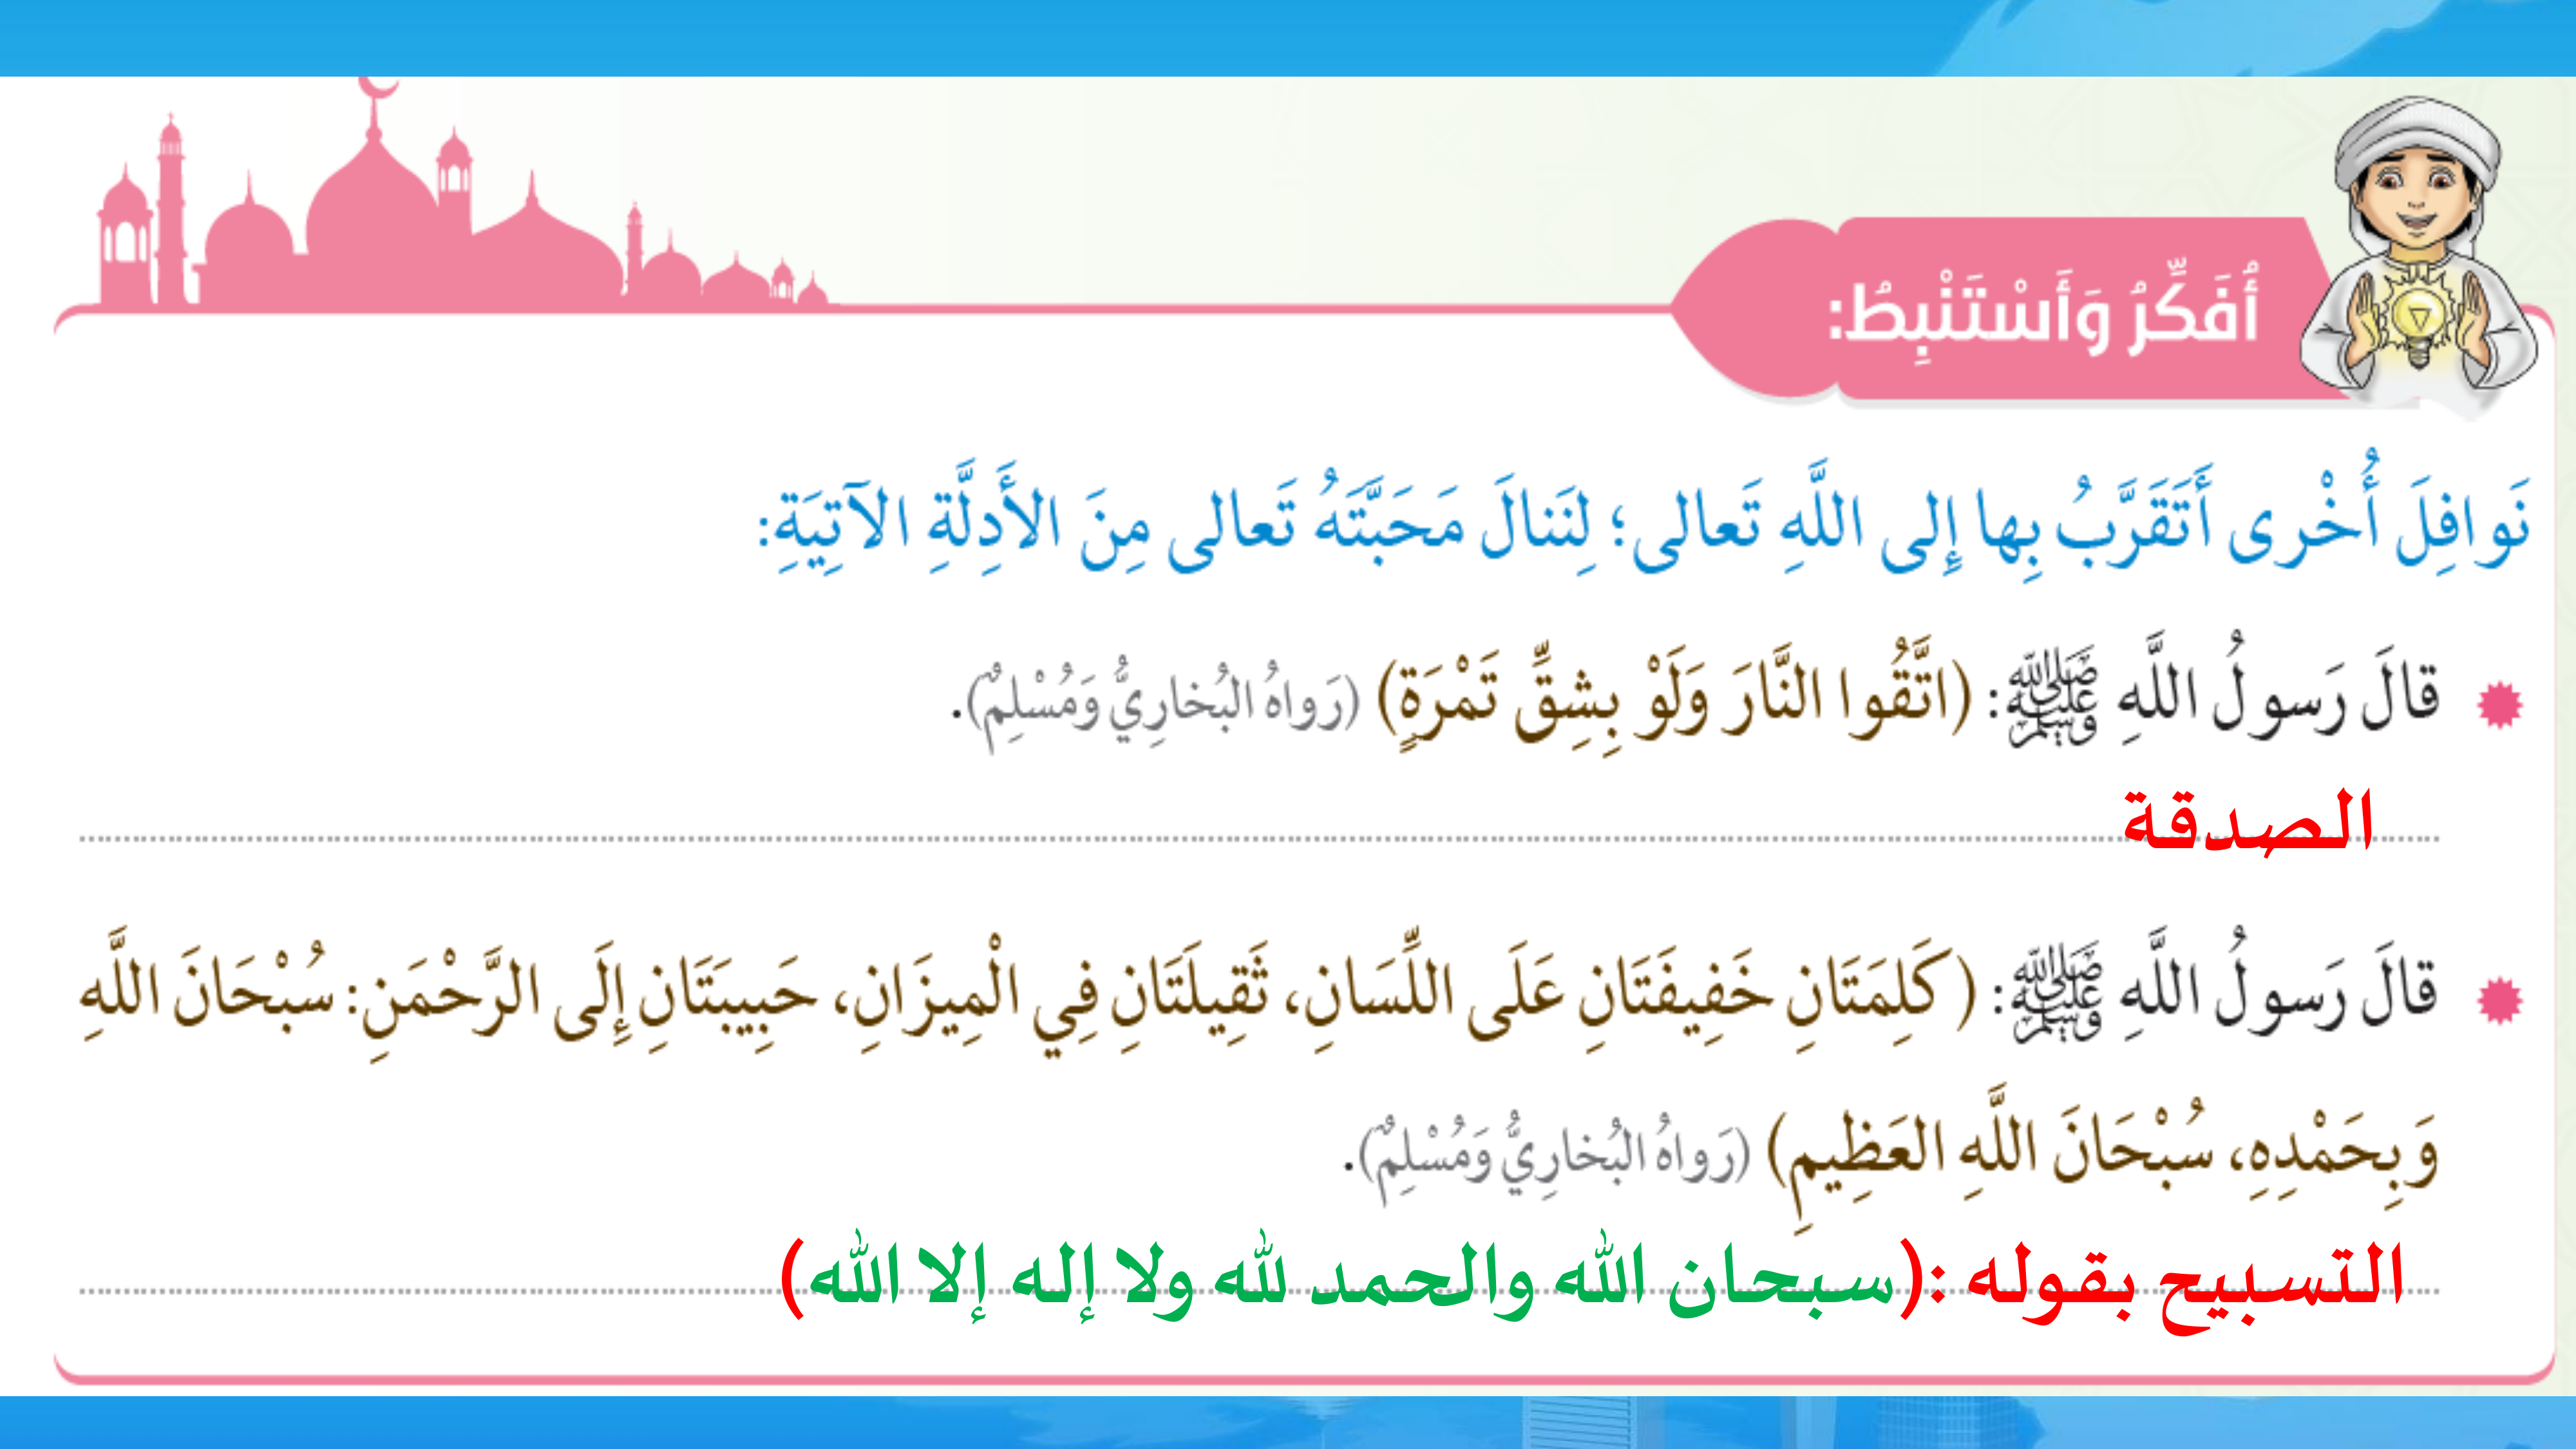 أُفَكِّرُ وَأَسْتَنْبِطُ:
نَوافِلَ أُخْرى أَتَقَرَّبُ بِها إِلى اللَّهِ تَعالى؛ لِنَنالَ مَحَبَّتَهُ تَعالى مِنَ الأَدِلَّةِ الآتِيَةِ:
قالَ رَسولُ اللَّهِ ﷺ: (اتَّقُوا النَّارَ وَلَوْ بِشِقِّ تَمْرَةٍ) (رَواهُ البُخارِيُّ وَمُسْلِمٌ).
الصدقة
قالَ رَسولُ اللَّهِ ﷺ: (كَلِمَتَانِ خَفِيفَتَانِ عَلَى اللِّسَانِ، ثَقِيلَتَانِ فِي الْمِيزَانِ، حَبِيبَتَانِ إِلَى الرَّحْمَنِ: سُبْحَانَ اللَّهِ
وَبِحَمْدِهِ، سُبْحَانَ اللَّهِ العَظِيمِ) (رَواهُ البُخارِيُّ وَمُسْلِمٌ).
التسبيح بقوله :(سبحان الله والحمد لله ولا إله إلا الله)